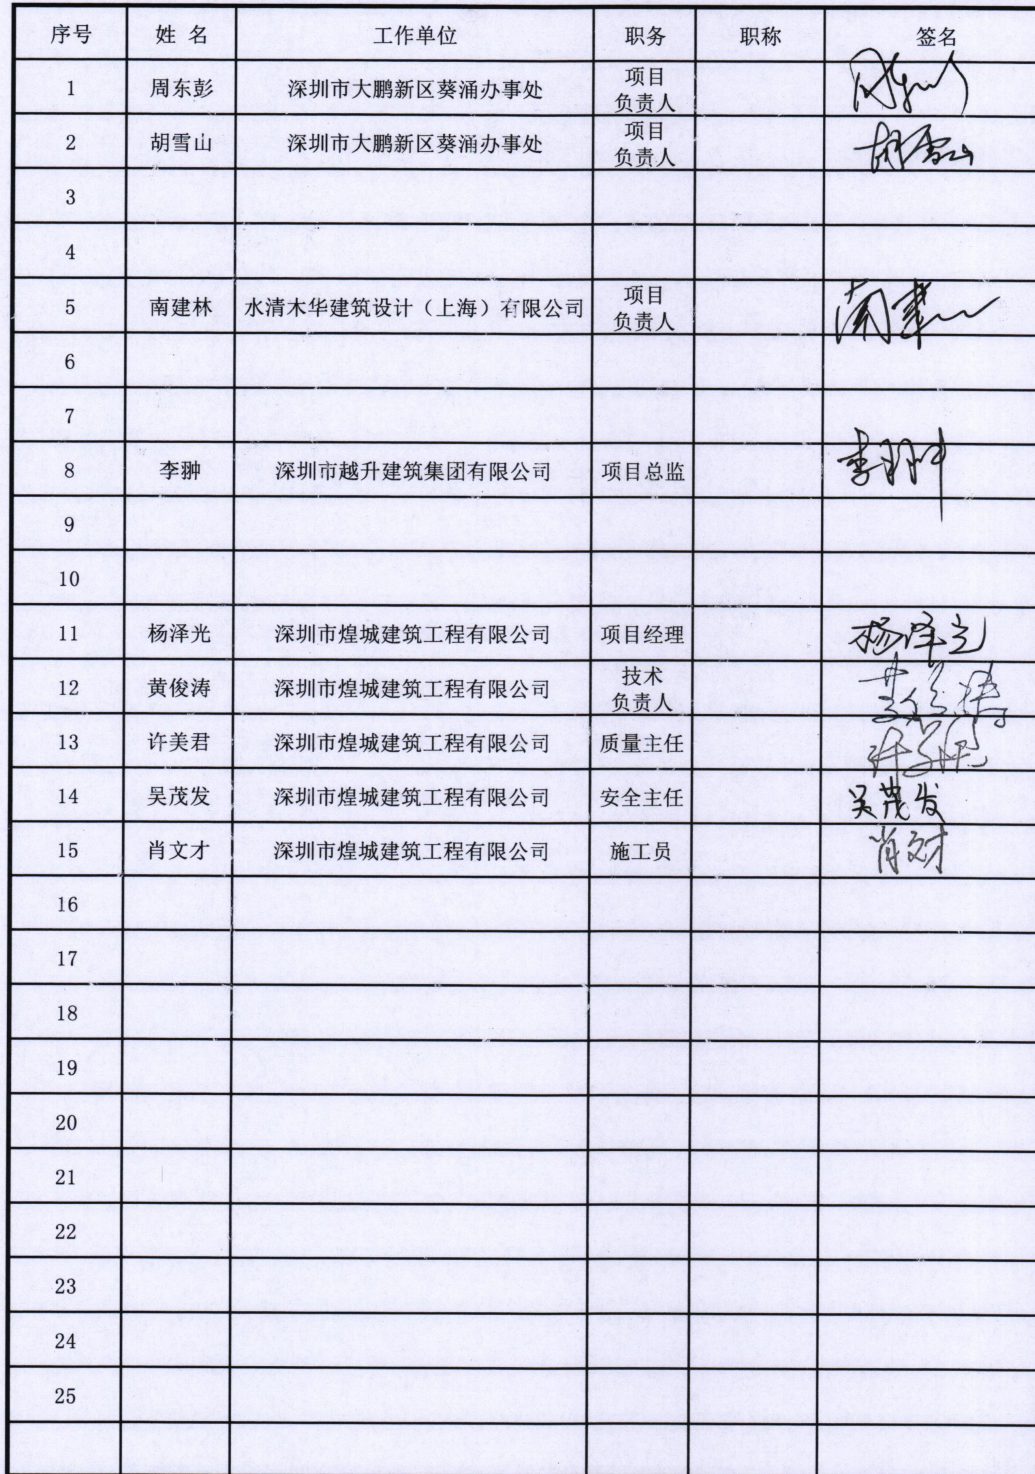 序号 姓 名 工作单位 职务 职称 签名
1 周东彭 深圳市大鹏新区葵涌办事处 项目
负责人
2 胡雪山 深圳市大鹏新区葵涌办事处 项目
负责人 胡雪山
3
4
5 南建林 水清木华建筑设计（上海）有限公司 项目
负责人
6
7
8 李翀 深圳市越升建筑集团有限公司 项目总监 李翀
9
10
11 杨泽光 深圳市煌城建筑工程有限公司 项目经理 杨泽光
12 黄俊涛 深圳市煌城建筑工程有限公司 技术
负责人 黄俊涛
13 许美君 深圳市煌城建筑工程有限公司 质量主任
14 吴茂发 深圳市煌城建筑工程有限公司 安全主任 吴茂发
15 肖文才 深圳市煌城建筑工程有限公司 施工员 肖文才
16
17
18
19
20
21
22
23
24
25